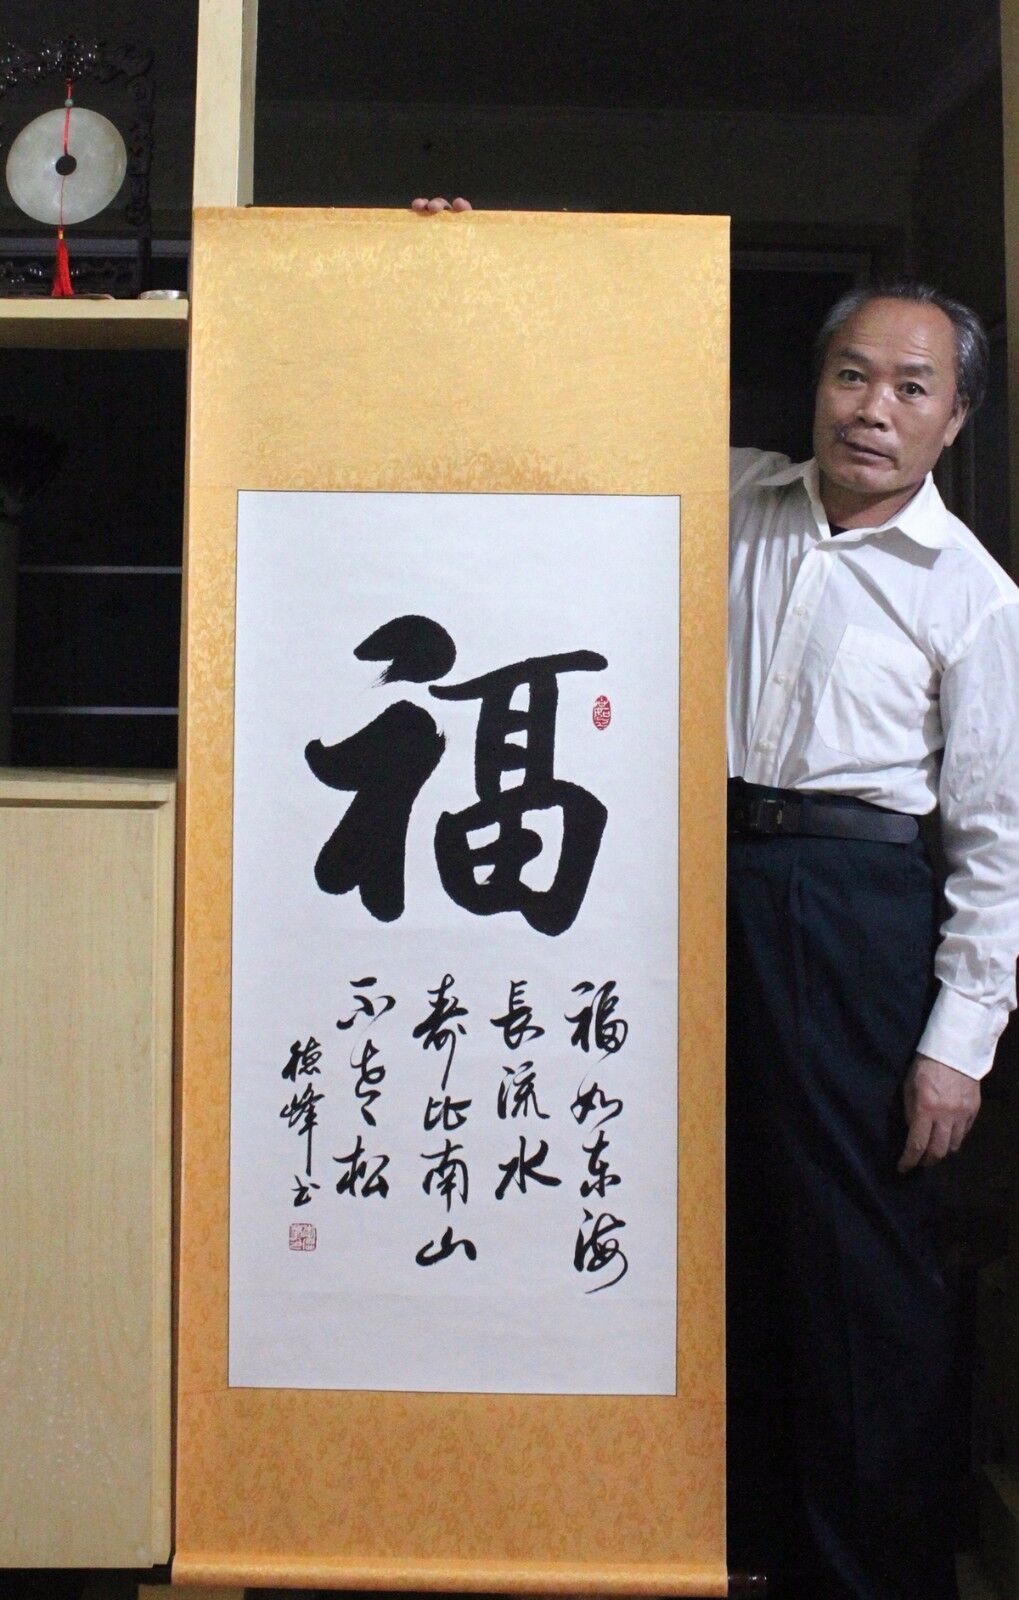 福
福如东海
長流水
寿比南山
不老松
德峰书